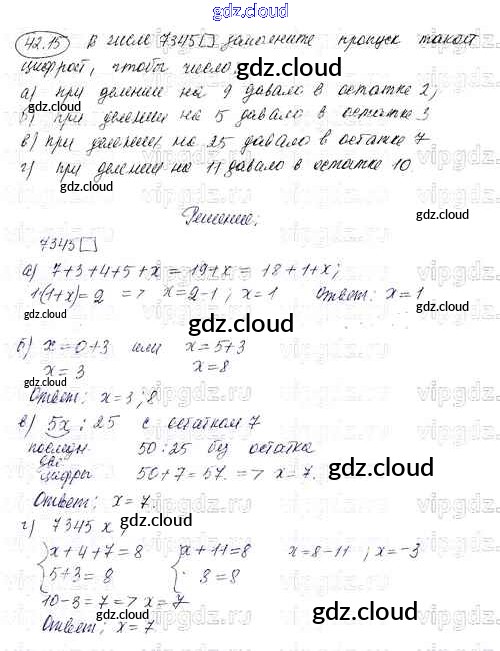 gdz.cloud
42.15 В числе 7345□ заполните пропуск такой
цифрой, чтобы число:
gdz.cloud
а) при делении на 9 давало в остатке 2;
б) при делении на 5 давало в остатке 3
в) при делении на 25 давало в остатке 7
г) при делении на 11 давало в остатке 10.
gdz.cloud
vipgdz.ru
Решение:
7345□
gdz.cloud
а) 7+3+4+5+x = 19+x = 18+1+x;
1(1+x)=2 => x=2-1; x=1 Ответ: x=1
gdz.cloud
б) x=0+3 или x=5+3
x=3 x=8
gdz.cloud
Ответ: x=3;8
в) 5x : 25 с остатком 7
последн 50:25 без остатка
две
цифры 50+7=57. => x=7.
gdz.cloud
Ответ: x=7
г) 7345x;
{x+4+7=8 {x+11=8 x=8-11; x=-3
{5+3=8 {8=8
10-3=7 => x=7
Ответ: x=7
gdz.cloud